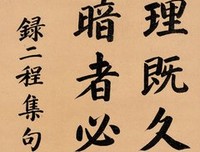 理既久
暗者必
録二程集句